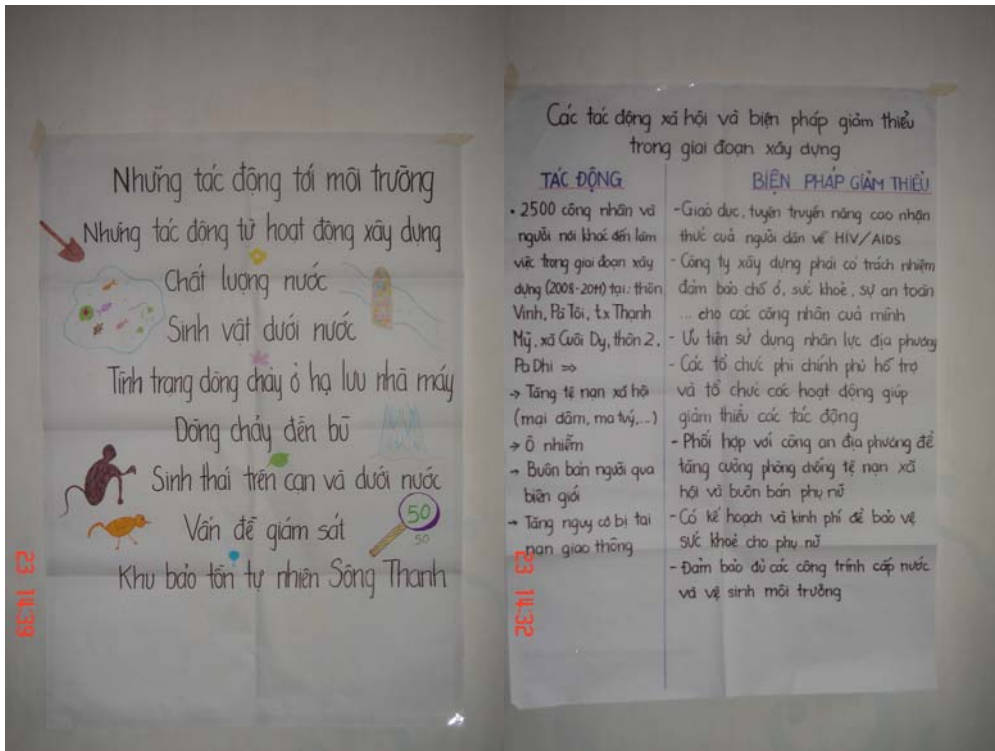 Những tác động tới môi trường
Những tác động từ hoạt động xây dựng
Chất lượng nước
Sinh vật dưới nước
Tình trạng dòng chảy ở hạ lưu nhà máy
Dòng chảy đền bù
Sinh thái trên cạn và dưới nước
Vấn đề giám sát
50
50
Khu bảo tồn tự nhiên Sông Thanh
23 14:39
Các tác động xã hội và biện pháp giảm thiểu
trong giai đoạn xây dựng
TÁC ĐỘNG
• 2500 công nhân và
người nơi khác đến làm
việc trong giai đoạn xây
dựng (2008-2011) tại: thôn
Vinh, Pà Tôi, t.x Thạnh
Mỹ, xã Cuôi Dy, thôn 2,
Pa Dhi =>
→ Tăng tệ nạn xã hội
(mại dâm, ma tuý,...)
→ Ô nhiễm
- Buôn bán người qua
biên giới
→ Tăng nguy cơ bị tai
nạn giao thông
BIỆN PHÁP GIẢM THIỂU
- Giáo dục, tuyên truyền nâng cao nhận
thức của người dân về HIV/AIDS
- Công ty xây dựng phải có trách nhiệm
đảm bảo chỗ ở, sức khoẻ, sự an toàn
... cho các công nhân của mình
- Ưu tiên sử dụng nhân lực địa phương
- Các tổ chức phi chính phủ hỗ trợ
và tổ chức các hoạt động giúp
giảm thiểu các tác động
- Phối hợp với công an địa phương để
tăng cường phòng chống tệ nạn xã
hội và buôn bán phụ nữ
- Có kế hoạch và kinh phí để bảo vệ
sức khoẻ cho phụ nữ
- Đảm bảo đủ các công trình cấp nước
và vệ sinh môi trường
23 14:32